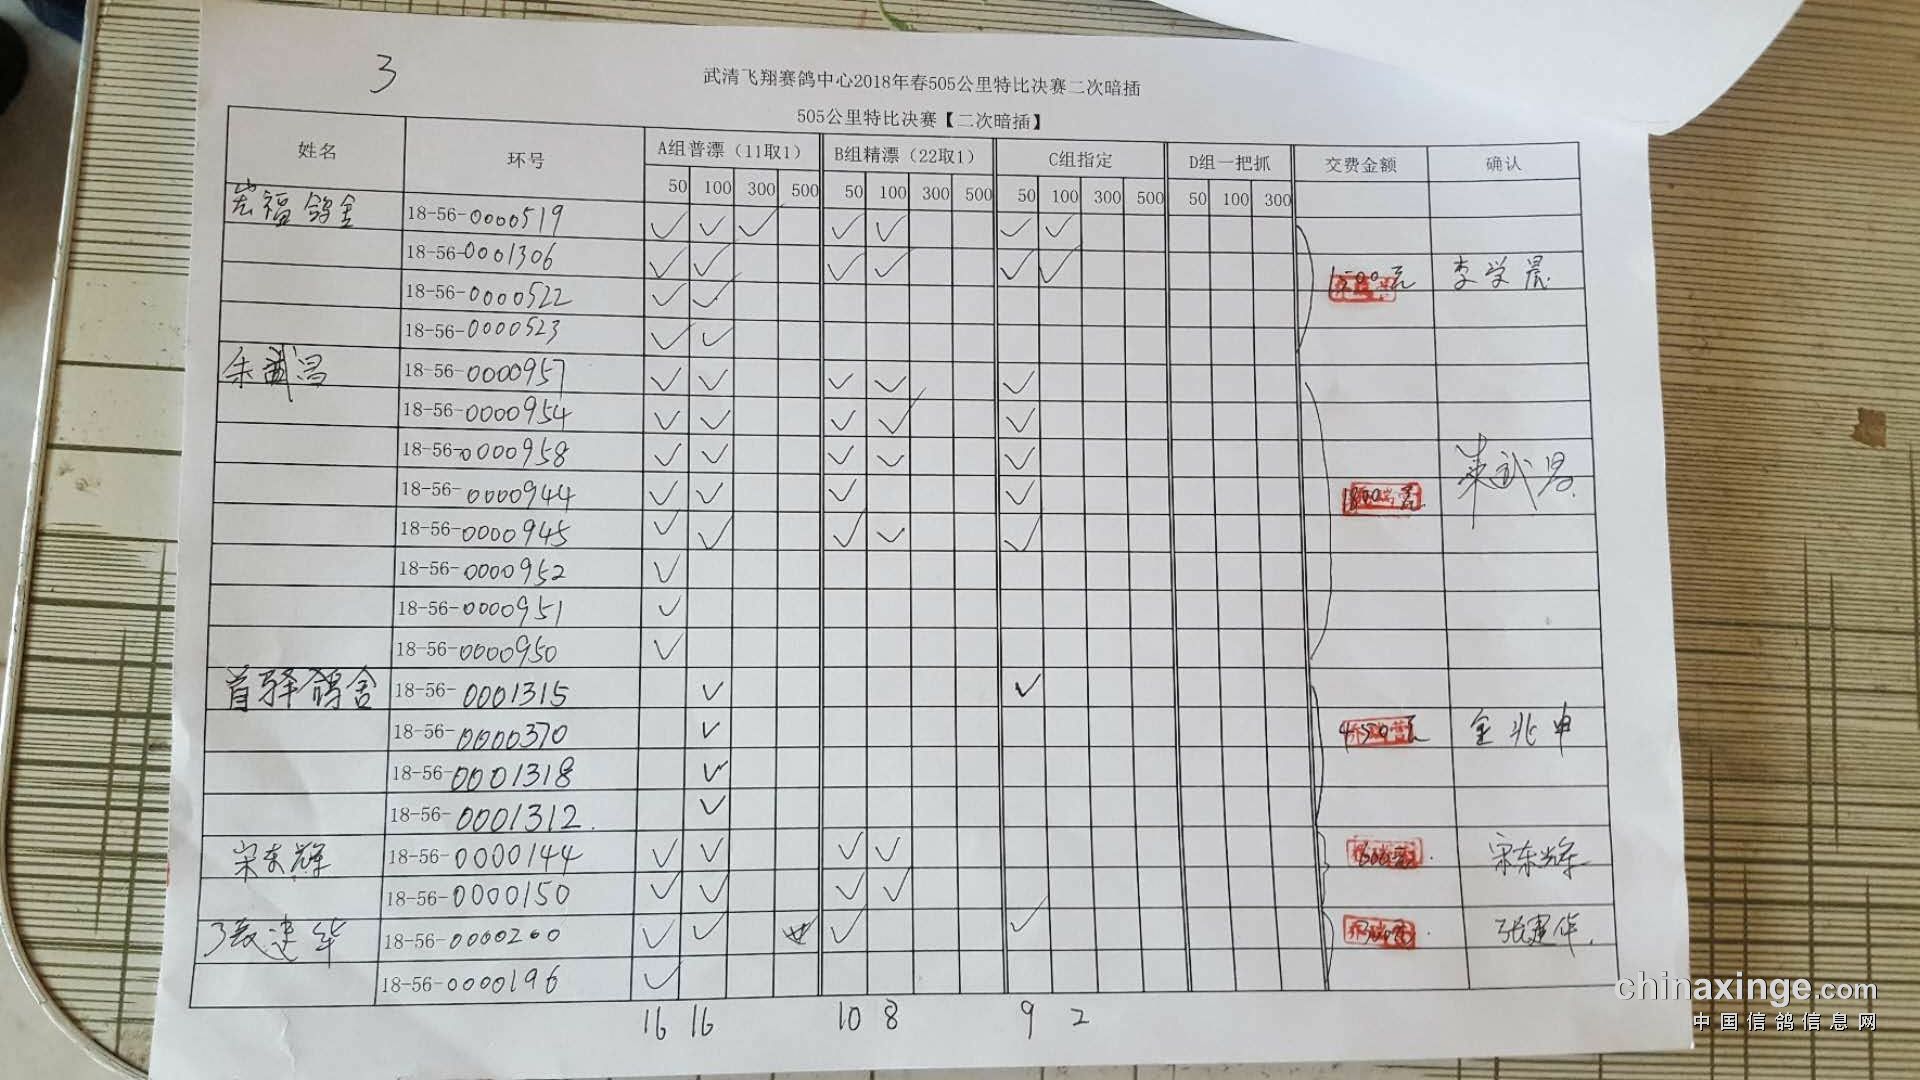 3
武清飞翔赛鸽中心2018年春505公里特比决赛二次暗插
505公里特比决赛【二次暗插】
姓名 环号 A组普漂（11取1） B组精漂（22取1） C组指定 D组一把抓 交费金额 确认
50 100 300 500 50 100 300 500 50 100 300 500 50 100 300
宏福鸽舍 18-56-0000519 ✓ ✓ ✓ ✓ ✓ ✓ ✓
18-56-0001306 ✓ ✓ ✓ ✓ ✓ ✓ 1500元 李学晨
18-56-0000522 ✓ ✓
18-56-0000523 ✓ ✓
朱武昌 18-56-0000957 ✓ ✓ ✓ ✓ ✓
18-56-0000954 ✓ ✓ ✓ ✓ ✓
18-56-0000958 ✓ ✓ ✓ ✓ ✓ 朱武昌
18-56-0000944 ✓ ✓ ✓ ✓ 1800元
18-56-0000945 ✓ ✓ ✓ ✓ ✓
18-56-0000952 ✓
18-56-0000951 ✓
18-56-0000950 ✓
首驿鸽舍 18-56-0001315 ✓ ✓
18-56-0000370 ✓ 450元 金兆申
18-56-0001318 ✓
18-56-0001312. ✓
宋东辉 18-56-0000144 ✓ ✓ ✓ ✓ 600元. 宋东辉
18-56-0000150 ✓ ✓ ✓ ✓
张建华 18-56-0000200 ✓ ✓ ✓ ✓ 300元. 张建华.
18-56-0000196 ✓
16 16 10 8 9 2
chinaxinge.com
中国信鸽信息网